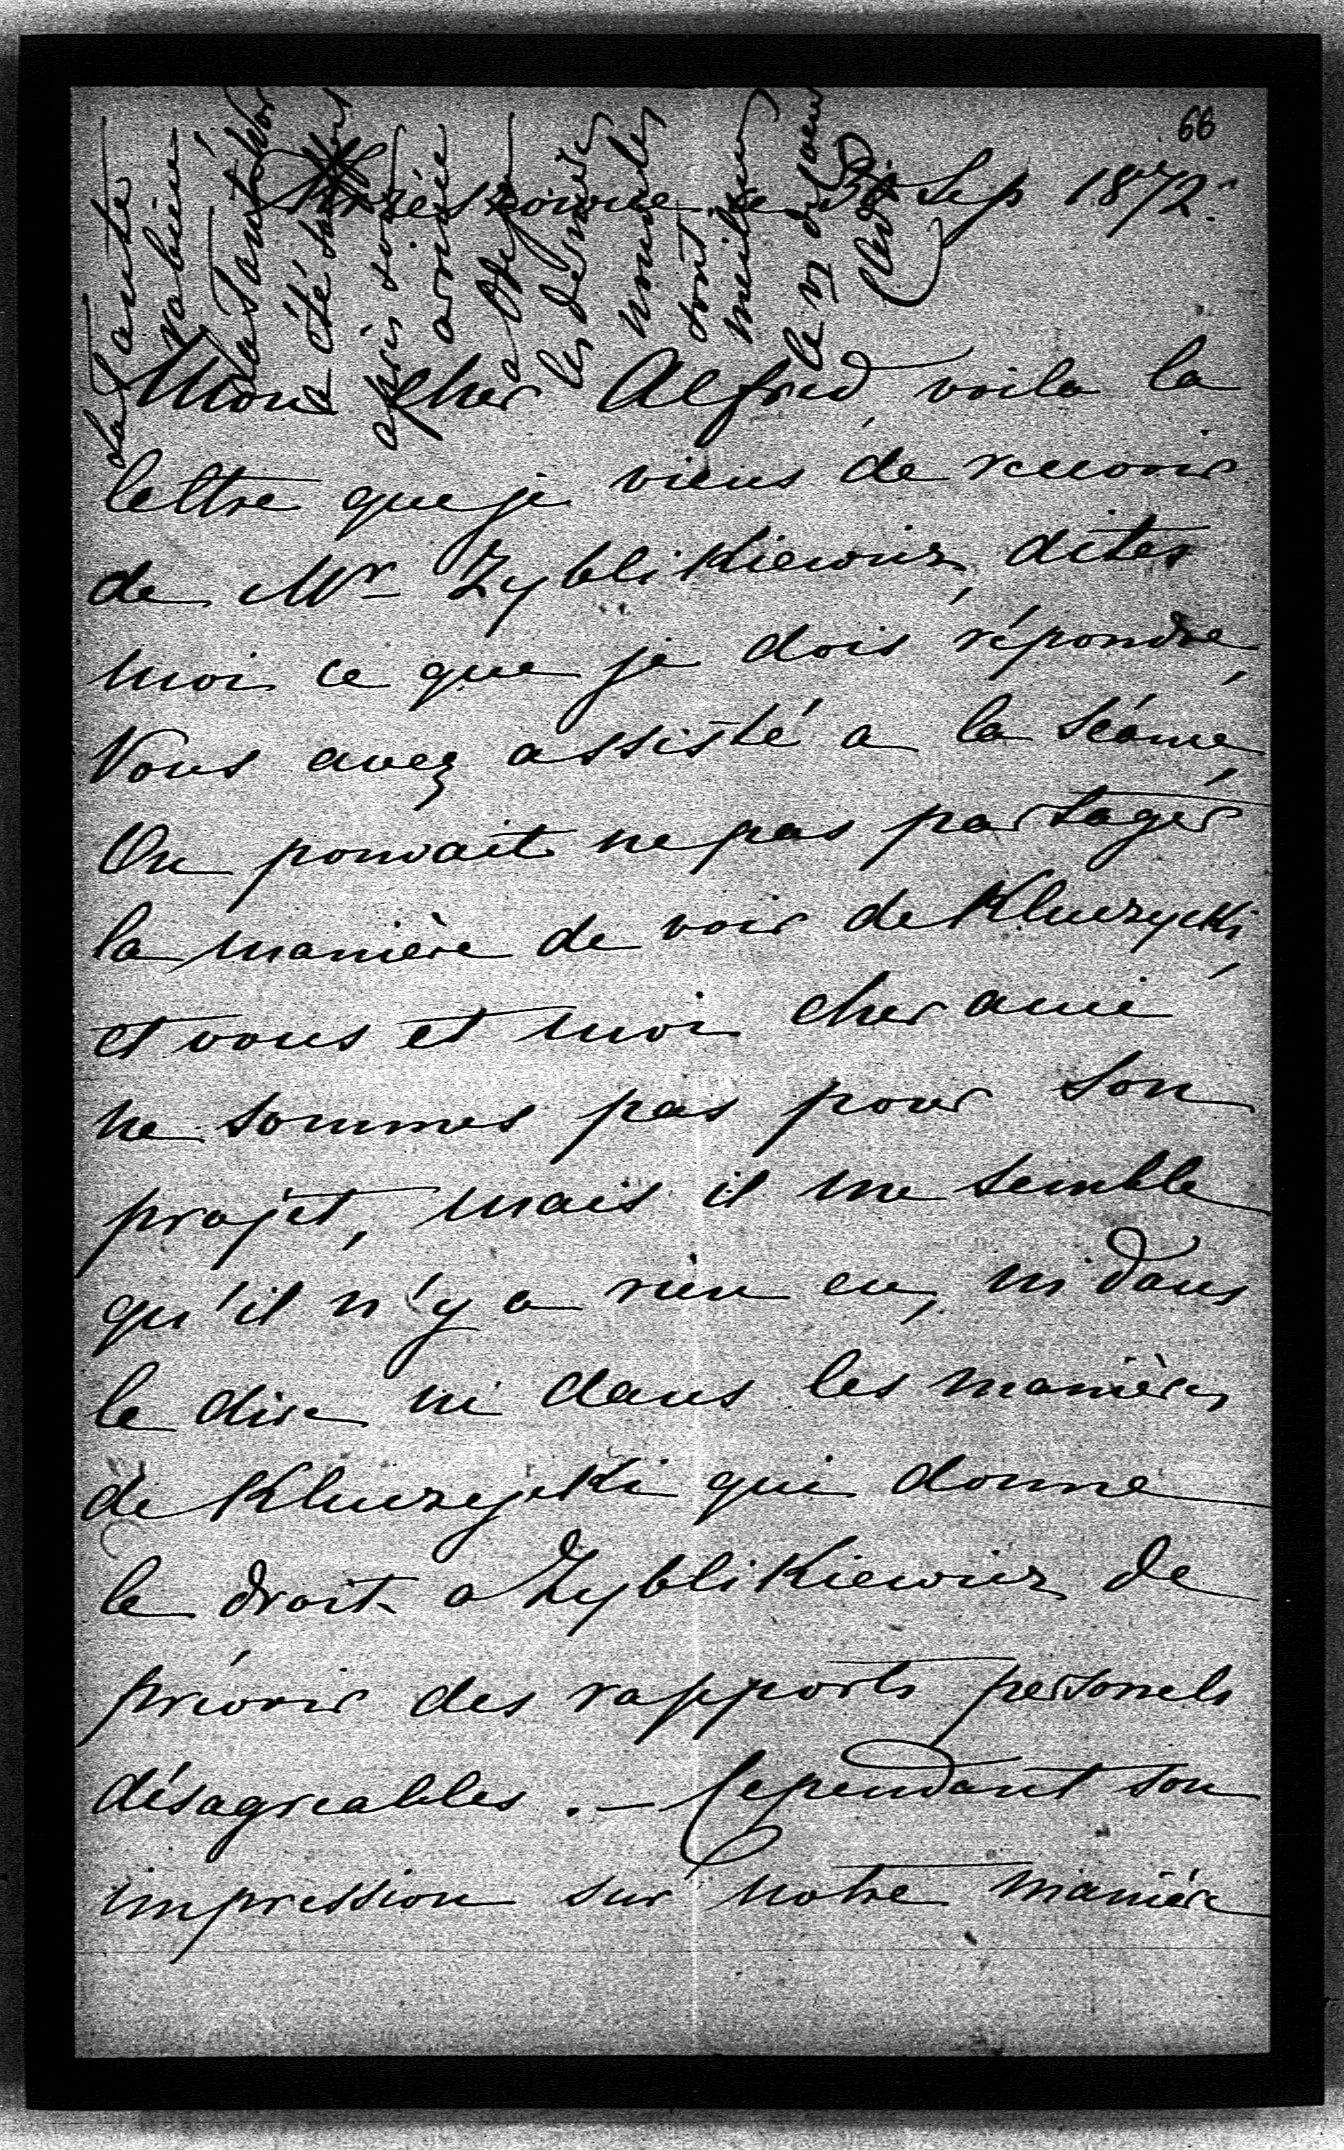 66
Krzeszowice ce 3 Sep 1872.
Mon cher Alfred, voila la
lettre que je viens de recevoir
de Mr Zyblikiewicz, dites
moi ce que je dois répondre,
Vous avez assisté a la séance,
On pouvait ne pas partager
la manière de voir de Kluczycki,
et vous et moi cher ami
ne sommes pas pour son
projet, mais il me semble
qu'il n'y a rien eu, ni dans
le dire ni dans les manières
de Kluczycki qui donne
le droit a Zyblikiewicz de
prévoir des rapports personels
désagreables. — Cependant son
impression sur notre manière
la Tante
va bien
la Tante
a été
après son
arrivée
a
les dernières
nouvelles
sont
meilleures
le